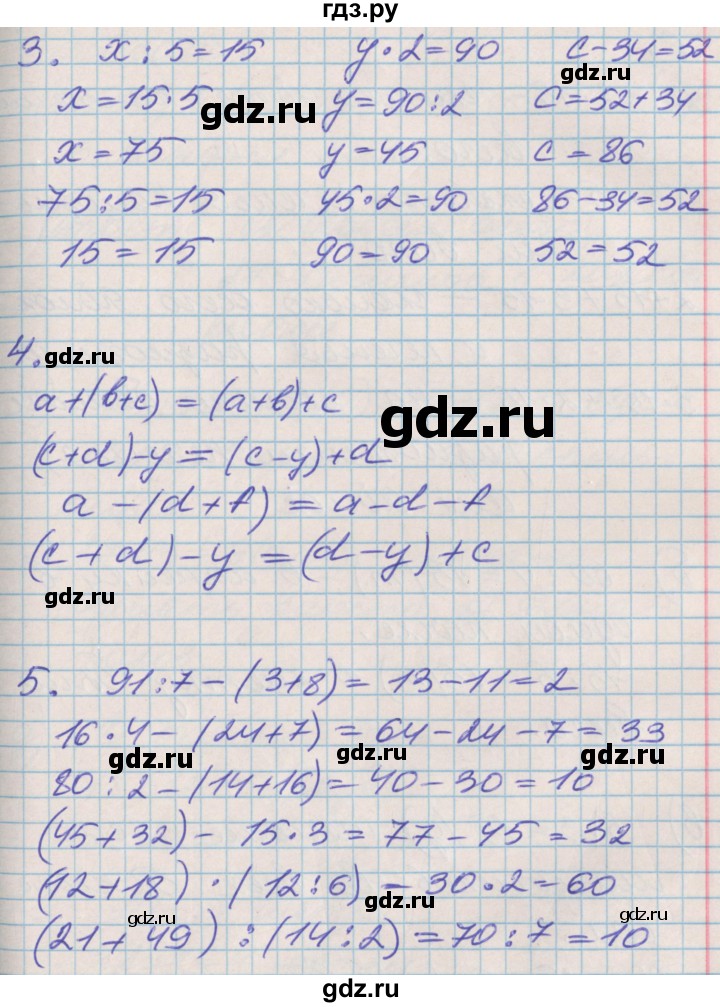 гдз.ру
3. x : 5 = 15 y · 2 = 90 c - 34 = 52
gdz.ru
x = 15 · 5 y = 90 : 2 c = 52 + 34
gdz.ru
x = 75 y = 45 c = 86
75 : 5 = 15 45 · 2 = 90 86 - 34 = 52
15 = 15 90 = 90 52 = 52
4.
gdz.ru
a + (b + c) = (a + b) + c
gdz.ru
(c + d) - y = (c - y) + d
a - (d + f) = a - d - f
(c + d) - y = (d - y) + c
gdz.ru
5. 91 : 7 - (3 + 8) = 13 - 11 = 2
16 · 4 - (24 + 7) = 64 - 24 - 7 = 33
gdz.ru gdz.ru gdz.ru
80 : 2 - (14 + 16) = 40 - 30 = 10
(45 + 32) - 15 · 3 = 77 - 45 = 32
(12 + 18) · (12 : 6) = 30 · 2 = 60
gdz.ru gdz.ru gdz.ru
(21 + 49) : (14 : 2) = 70 : 7 = 10
gdz.ru